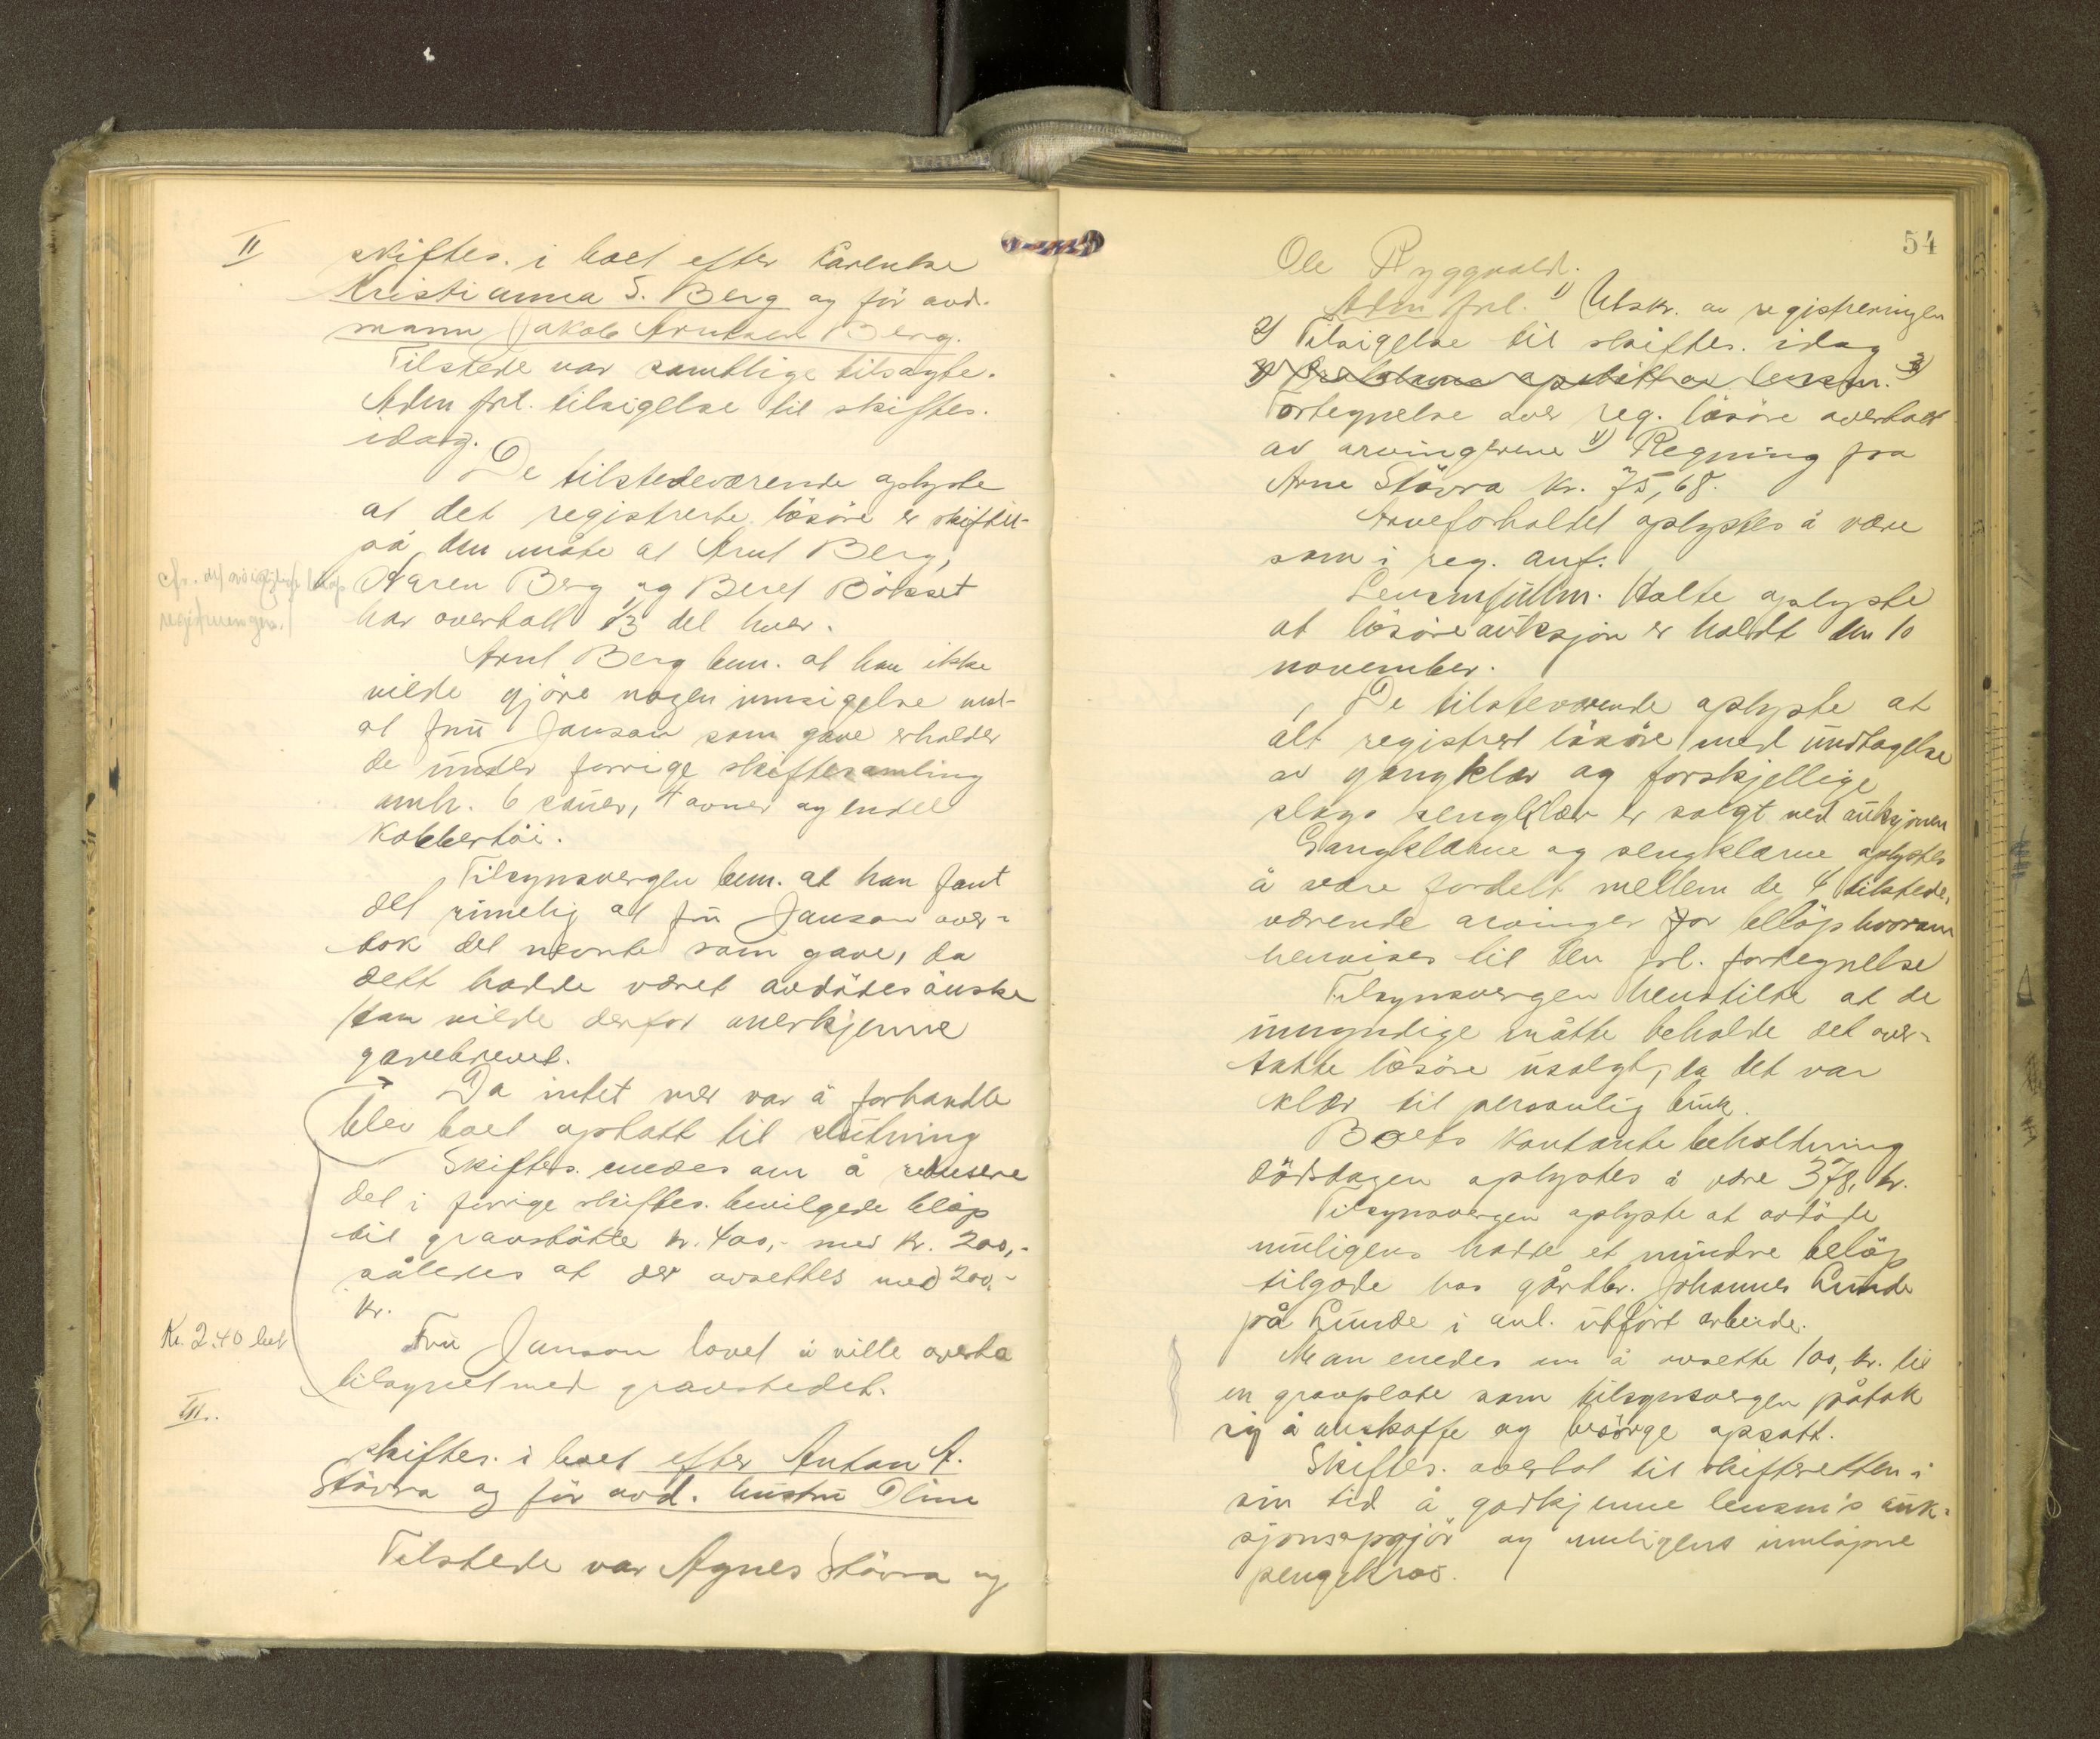 II
skiftes. i boet efter
Kristianna S. Berg og før avd.
mann Jakob Arntsen Berg.
Tilstede var samtlige tilsagte.
Adm frl. tilsigelse til skiftes.
idag.
De tilstedeværende oplyste
at det registrerte løsøre er skiftet
på den måte at Arnt Berg,
Karen Berg og Beret Bölsset
har overtatt 1/3 del hver.
cfr.
registreringen.
Arnt Berg bem. at han ikke
vilde gjöre nogen innsigelse mot
at frü Janson som gave erholder
de ünder forrige skiftesamling
omh. 6 sauer, 4 ovner og endel
kobbertöi.
Tilsynsvergen bem. at han fant
det rimelig at frü Janson over-
tok det nevnte som gave, da
dett hadde været avdödes önske
Han vilde derfor anerkjenne
gavebrevet.
Da intet mer var å forhandle
blev boet optatt til slutning
Skiftes. enedes om å redusere
det i forrige skiftes. bevilgede beløp
til gravstötte kr. 400,- med kr. 200,-
således at der avsettes med 200,-
kr.
Kr. 2.40 bet
Frü Janson lovet å ville overta
tilsynet med gravstedet.
III.
Skiftes. i boet efter Anton A.
Störra og før avd. hüstrü Oline
Tilstede var Agnes Störra og
54
Ole Ryggvold.
Adm frl. 1) Utskr. av registreringen
2) Tilsigelse til skiftes. idag
3)
Fortegnelse over reg. løsøre overtatt
av arvingerne 4) Regning fra
Arne Störra kr. 75,68.
Arveforholdet oplystes å være
som i reg. anf.
Lensmfüllm. Holte oplyste
at løsøreauksjon er holdt den 10
november.
De tilsteværende oplyste at
alt registrert løsøre med ündtagelse
av gangklær og forskjellige
slags sengklær er solgt ved auksjonen
Gangklærne og sengklærne oplystes
å være fordelt mellem de 4 tilstede,
værende arvinger for beløp hvorom
henvises til den frl. fortegnelse
Tilsynsvergen henstilte at de
ümyndige måtte beholde det over-
tatte løsøre üsolgt, da det var
klær til personlig bruk.
Boets kontante beholdning
dödsdagen oplystes å være 378, kr.
Tilsynsvergen oplyste at avdöde
müligens hadde et mindre beløp
tilgode hos gårdbr. Johannes Lünde
på Lünde i anl. ütført arbeide.
Man enedes om å avsette 100, kr. til
en gravplate som tilsynsvergen påtok
sig å anskaffe og besörge opsatt.
Skiftes. overlot til skifteretten i
sin tid å godkjenne lensm's auk-
sjonsopgjör og muligens innløpne
pengekrav.